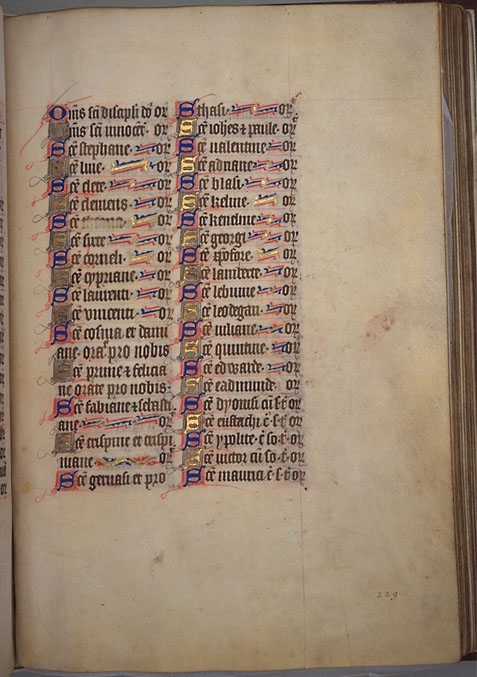 Om̄s sc̄i discipli dn̄i or
Om̄s sc̄i innocē̄t or
Sc̄e stephane or
Sc̄e line or
Sc̄e clete or
Sc̄e clemens or
Sc̄e or
Sc̄e sixte or
Sc̄e corneli or
Sc̄e cypriane or
Sc̄e laurenti or
Sc̄e vincenti or
Sc̄e cosma et dami
ane orat pro nobis
Sc̄e prime et felicia
ne orate pro nobis
Sc̄e fabiane et sebasti
ane or
Sc̄e crispine et crispi
niane or
Sc̄e gervasi et pro
thasi or
Sc̄e ioh̄es et paule or
Sc̄e valentine or
Sc̄e adriane or
Sc̄e blasi or
Sc̄e keline or
Sc̄e kenelme or
Sc̄e georgi or
Sc̄e xp̄ofore or
Sc̄e lamberte or
Sc̄e lebuine or
Sc̄e leodegari or
Sc̄e iuliane or
Sc̄e quintine or
Sc̄e edwarde or
Sc̄e eadmunde or
Sc̄e dyonisi cū s t or
Sc̄e eustachi c̄ s t or
Sc̄e ypolite c̄ so t or
Sc̄e victor cū so t or
Sc̄e maurici c̄ s t or
229